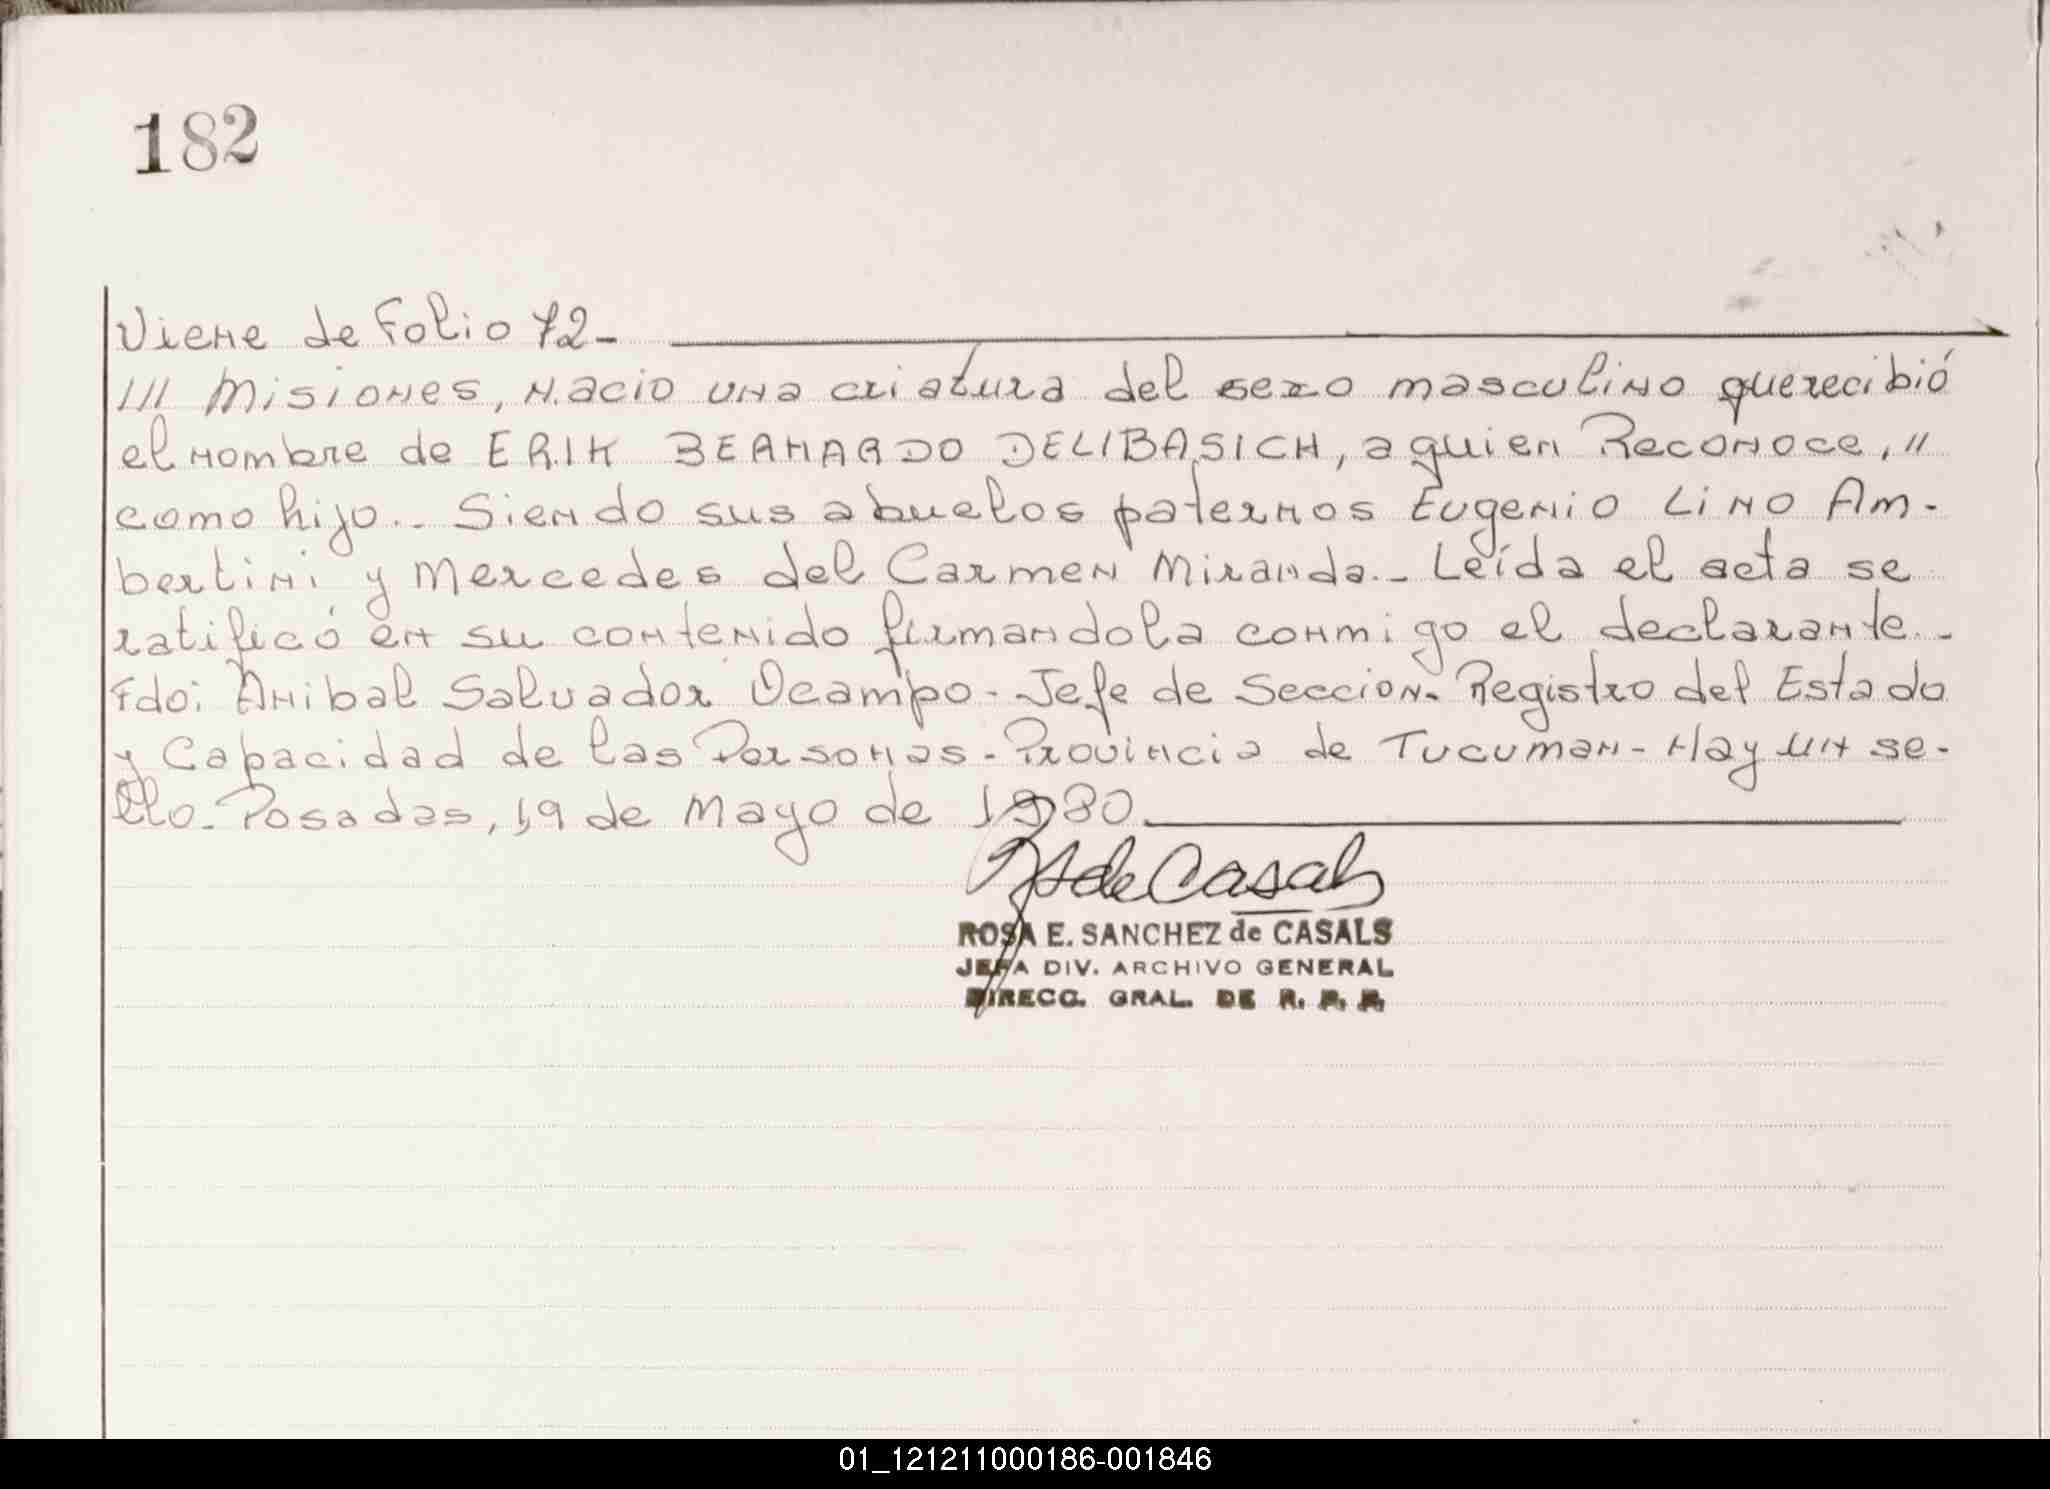 182
Viene de Folio 72-
/// Misiones, nacio una criatura del sexo masculino que recibió
el nombre de ERIK BERNARDO DELIBASICH, a quien Reconoce, //
como hijo.- Siendo sus abuelos paternos Eugenio Lino Am-
bertini y Mercedes del Carmen Miranda.- Leída el acta se
ratificó en su contenido firmandola conmigo el declarante.-
Fdo: Anibal Salvador Ocampo - Jefe de Seccion- Registro del Estado
y Capacidad de las Personas - Provincia de Tucuman - Hay un se-
llo- Posadas, 19 de Mayo de 1980
RS de Casals
ROSA E. SANCHEZ de CASALS
JEFA DIV. ARCHIVO GENERAL
DIRECC. GRAL. DE R. P. P.
01_121211000186-001846